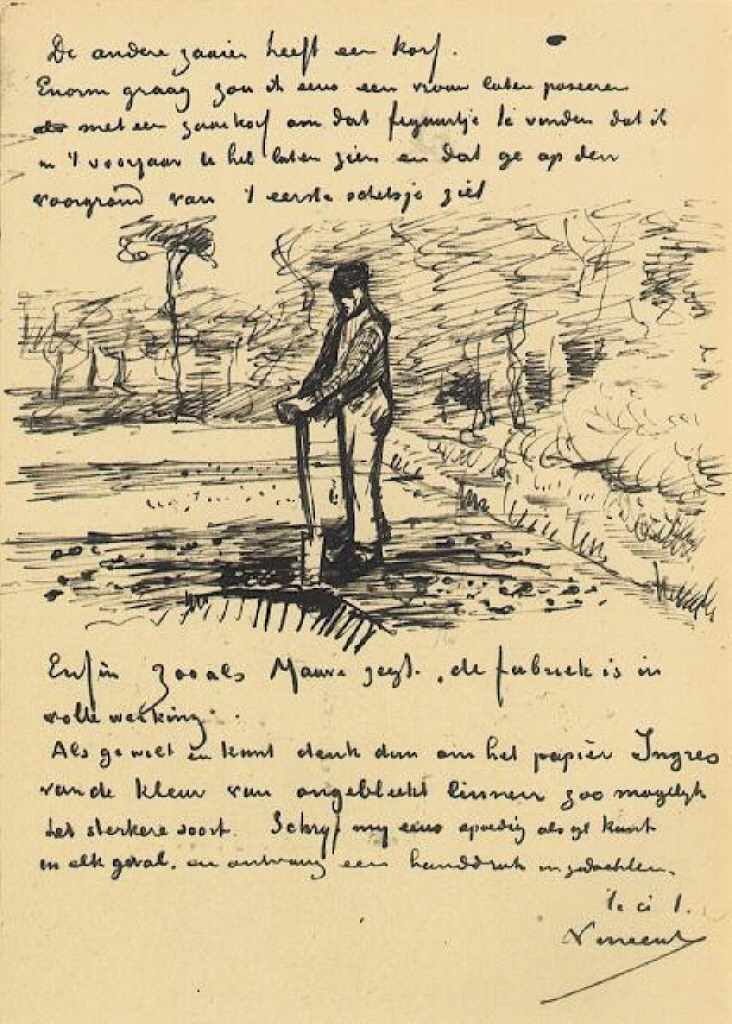 De andere zaaier heeft een korf.
Enorm graag zou ik eens een vrouw laten poseeren
met een zaaikorf om dat figuurtje te vinden dat ik
in 't voorjaar U heb laten zien en dat ge op den
voorgrond van 't eerste schetsje ziet
Enfin zooals Mauve zegt, de fabriek is in
volle werking.
Als ge wilt en kunt denk dan om het papier Ingres
van de kleur van ongebleekt linnen zoo mogelyk
het sterkere soort. Schryf my eens spoedig als ge kunt
in elk geval, en ontvang een handdruk in gedachten.
t. à t.
Vincent